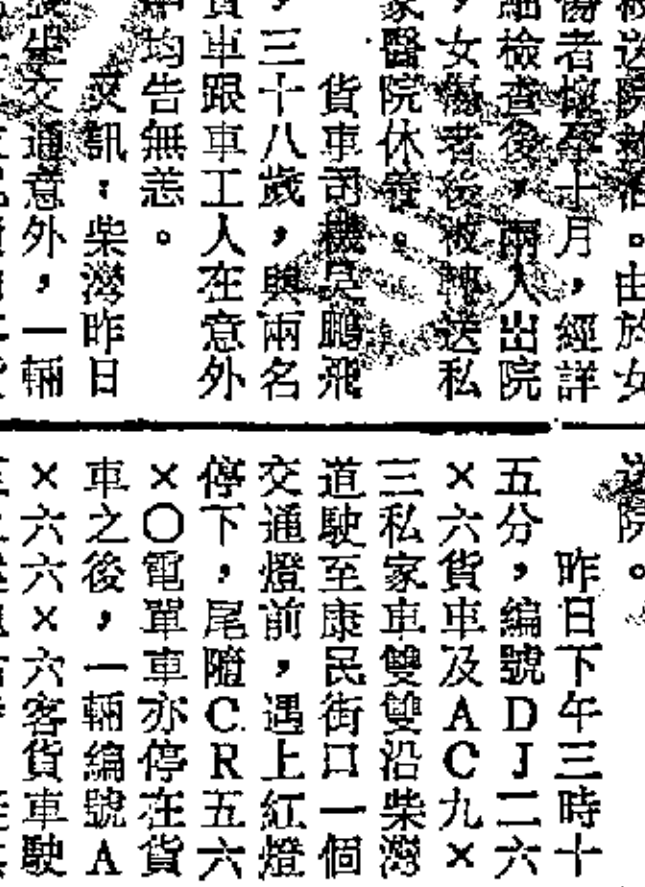 被送院救治。由於女
傷者懷孕十月，經詳
細檢查後，兩人出院
，女傷者後被轉送私
家醫院休養。
貨車司機吳鵬飛
，三十八歲，與兩名
貨車跟車工人在意外
中均告無恙。
又訊：柴灣昨日
生交通意外，一輛
送院。
昨日下午三時十
五分，編號ＤＪ二六
×六貨車及ＡＣ九×
三私家車雙雙沿柴灣
道駛至康民街口一個
交通燈前，遇上紅燈
停下，尾隨ＣＲ五六
×〇電單車亦停在貨
車之後，一輛編號Ａ
×六六×六客貨車駛